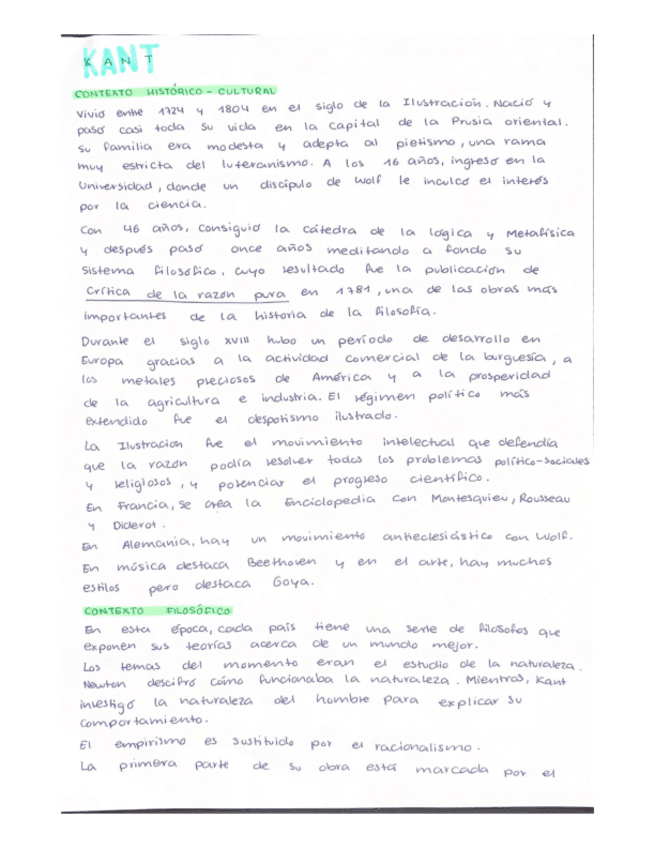 KANT
CONTEXTO HISTÓRICO - CULTURAL
Vivió entre 1724 y 1804 en el siglo de la Ilustración. Nació y
pasó casi toda su vida en la capital de la Prusia oriental.
Su familia era modesta y adepta al pietismo, una rama
muy estricta del luteranismo. A los 16 años, ingresó en la
Universidad, donde un discípulo de Wolf le inculcó el interés
por la ciencia.
Con 46 años, consiguió la cátedra de la lógica y Metafísica
y después pasó once años meditando a fondo su
sistema filosófico, cuyo resultado fue la publicación de
Crítica de la razón pura en 1781, una de las obras más
importantes de la historia de la filosofía.
Durante el siglo XVIII hubo un período de desarrollo en
Europa gracias a la actividad comercial de la burguesía, a
los metales preciosos de América y a la prosperidad
de la agricultura e industria. El régimen político más
extendido fue el despotismo ilustrado.
La Ilustración fue el movimiento intelectual que defendía
que la razón podía resolver todos los problemas político-sociales
y religiosos, y potenciar el progreso científico.
En Francia, se crea la Enciclopedia con Montesquieu, Rousseau
y Diderot.
En Alemania, hay un movimiento antieclesiástico con Wolf.
En música destaca Beethoven y en el arte, hay muchos
estilos pero destaca Goya.
CONTEXTO FILOSÓFICO
En esta época, cada país tiene una serie de filósofos que
exponen sus teorías acerca de un mundo mejor.
Los temas del momento eran el estudio de la naturaleza.
Newton descifró cómo funcionaba la naturaleza. Mientras, Kant
investigó la naturaleza del hombre para explicar su
comportamiento.
El empirismo es sustituido por el racionalismo.
La primera parte de su obra está marcada por el